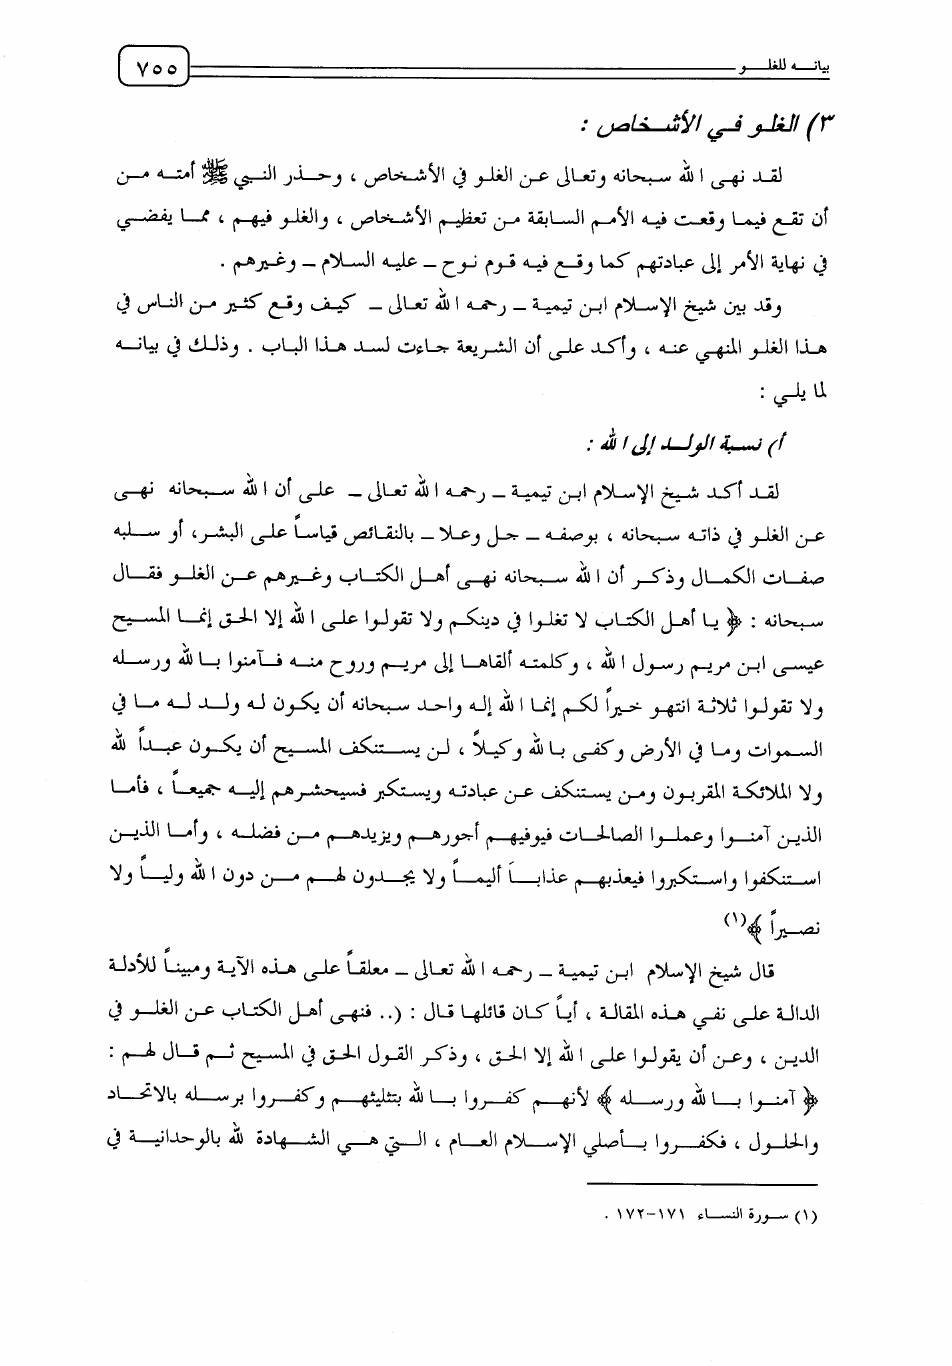 بيانه للغلو
٧٥٥
٣) الغلو في الأشخاص :
لقد نهى الله سبحانه وتعالى عن الغلو في الأشخاص ، وحذر النبي ﷺ أمته من
أن تقع فيما وقعت فيه الأمم السابقة من تعظيم الأشخاص ، والغلو فيهم ، مما يفضي
في نهاية الأمر إلى عبادتهم كما وقع فيه قوم نوح – عليه السلام – وغيرهم .
وقد بين شيخ الإسلام ابن تيمية – رحمه الله تعالى – كيف وقع كثير من الناس في
هذا الغلو المنهي عنه ، وأكد على أن الشريعة جاءت لسد هذا الباب . وذلك في بيانه
لما يلي :
أ) نسبة الولد إلى الله :
لقد أكد شيخ الإسلام ابن تيمية – رحمه الله تعالى – على أن الله سبحانه نهى
عن الغلو في ذاته سبحانه ، بوصفه – جل وعلا – بالنقائص قياساً على البشر، أو سلبه
صفات الكمال وذكر أن الله سبحانه نهى أهل الكتاب وغيرهم عن الغلو فقال
سبحانه : ﴿ يا أهل الكتاب لا تغلوا في دينكم ولا تقولوا على الله إلا الحق إنما المسيح
عيسى ابن مريم رسول الله ، وكلمته ألقاها إلى مريم وروح منه فآمنوا بالله ورسله
ولا تقولوا ثلاثة انتهو خيراً لكم إنما الله إله واحد سبحانه أن يكون له ولد له ما في
السموات وما في الأرض وكفى بالله وكيلاً ، لن يستنكف المسيح أن يكون عبداً لله
ولا الملائكة المقربون ومن يستنكف عن عبادته ويستكبر فسيحشرهم إليه جميعاً ، فأما
الذين آمنوا وعملوا الصالحات فيوفيهم أجورهم ويزيدهم من فضله ، وأما الذين
استنكفوا واستكبروا فيعذبهم عذاباً أليماً ولا يجدون لهم من دون الله ولياً ولا
نصيراً ﴾(١)
قال شيخ الإسلام ابن تيمية – رحمه الله تعالى – معلقاً على هذه الآية ومبيناً للأدلة
الدالة على نفي هذه المقالة ، أياً كان قائلها قال : (.. فنهى أهل الكتاب عن الغلو في
الدين ، وعن أن يقولوا على الله إلا الحق ، وذكر القول الحق في المسيح ثم قال لهم :
﴿ آمنوا بالله ورسله ﴾ لأنهم كفروا بالله بتثليثهم وكفروا برسله بالاتحاد
والحلول ، فكفروا بأصلي الإسلام العام ، التي هي الشهادة لله بالوحدانية في
(١) سورة النساء ١٧١-١٧٢ .